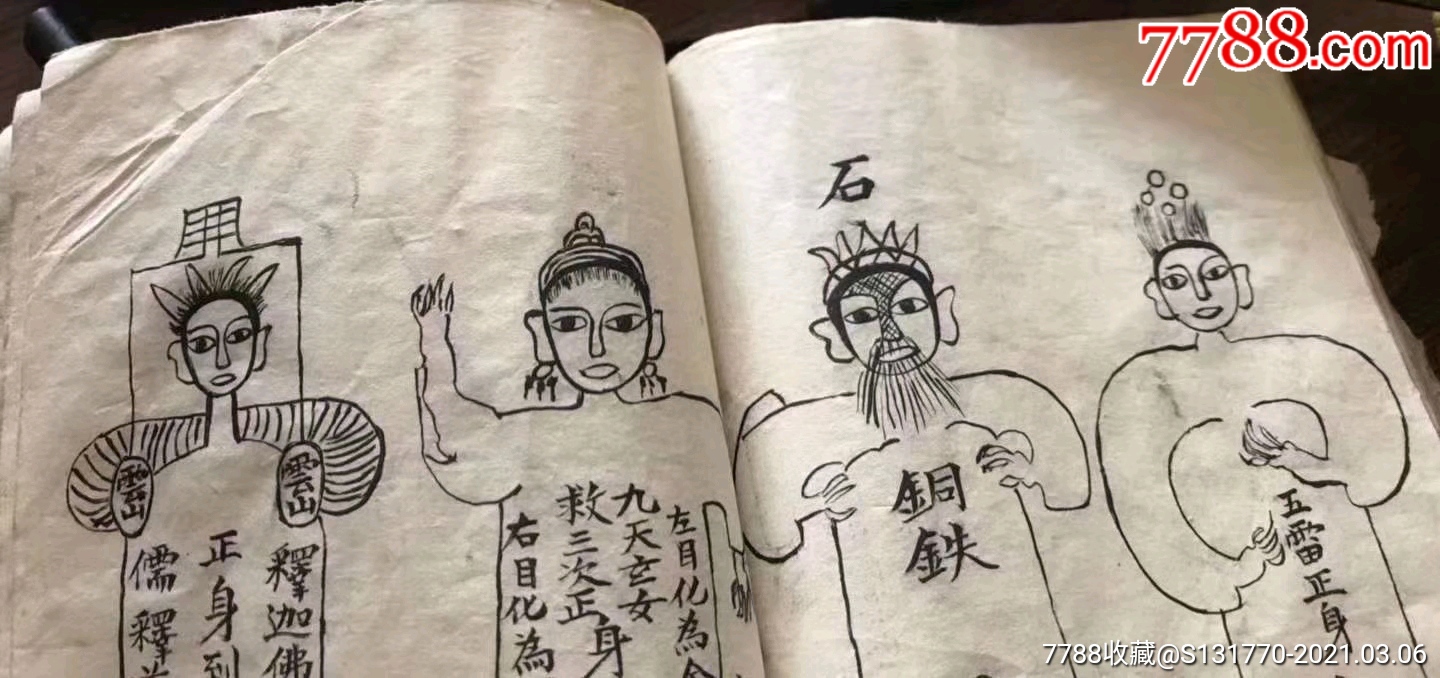 7788.com
石
雲山
雲山
釋迦佛
正身到
儒釋
左目化為
九天玄女
救三次正身
右目化為
銅
鉄
五雷正身
7788收藏@S131770-2021.03.06